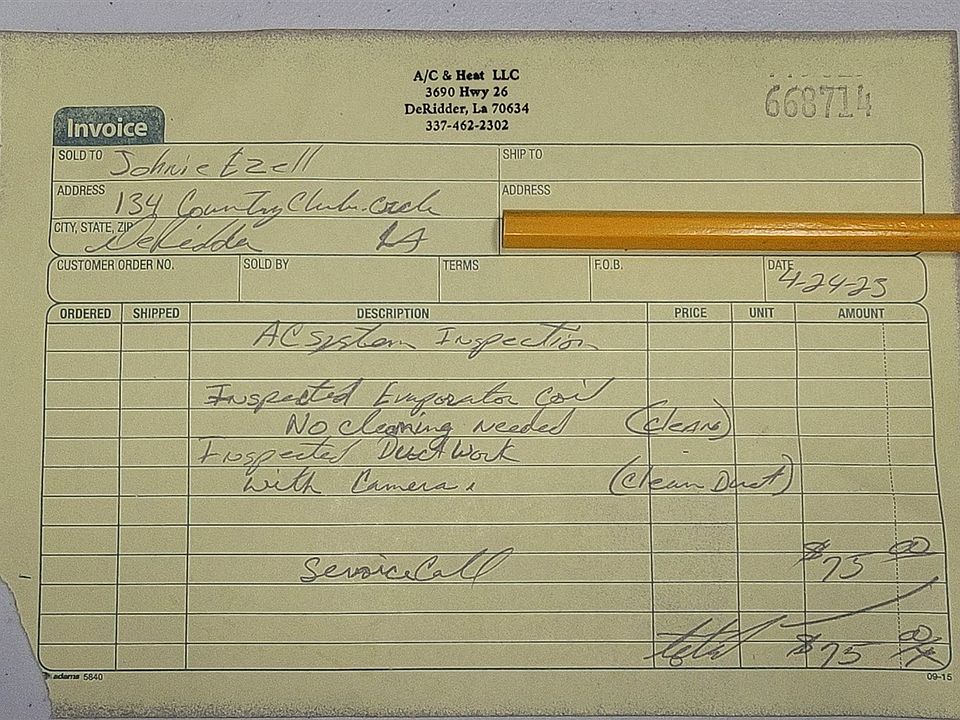 A/C & Heat LLC
3690 Hwy 26
DeRidder, La 70634
337-462-2302
668714
Invoice
SOLD TO Johnie Ezell
SHIP TO
ADDRESS 134 Country Club
ADDRESS
CITY, STATE, ZIP DeRidder LA
CUSTOMER ORDER NO. SOLD BY TERMS F.O.B. DATE 4-24-23
ORDERED SHIPPED DESCRIPTION PRICE UNIT AMOUNT
AC system Inspection
Inspected Evaporator Coil
No cleaning needed (clean)
Inspected Duct Work
with Camera (Clean Duct)
Service Call $75 00
total $75 00
adams 5840 09-15